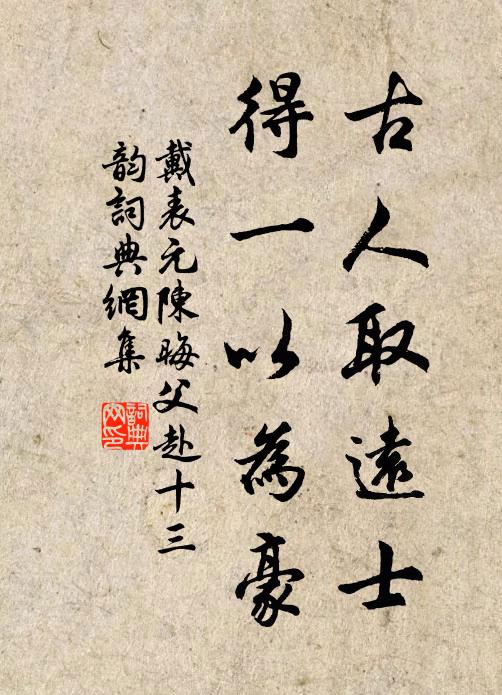 古人取遠士
得一以為豪
戴表元陳晦父赴十三
韵詞典網集
詞典
网印